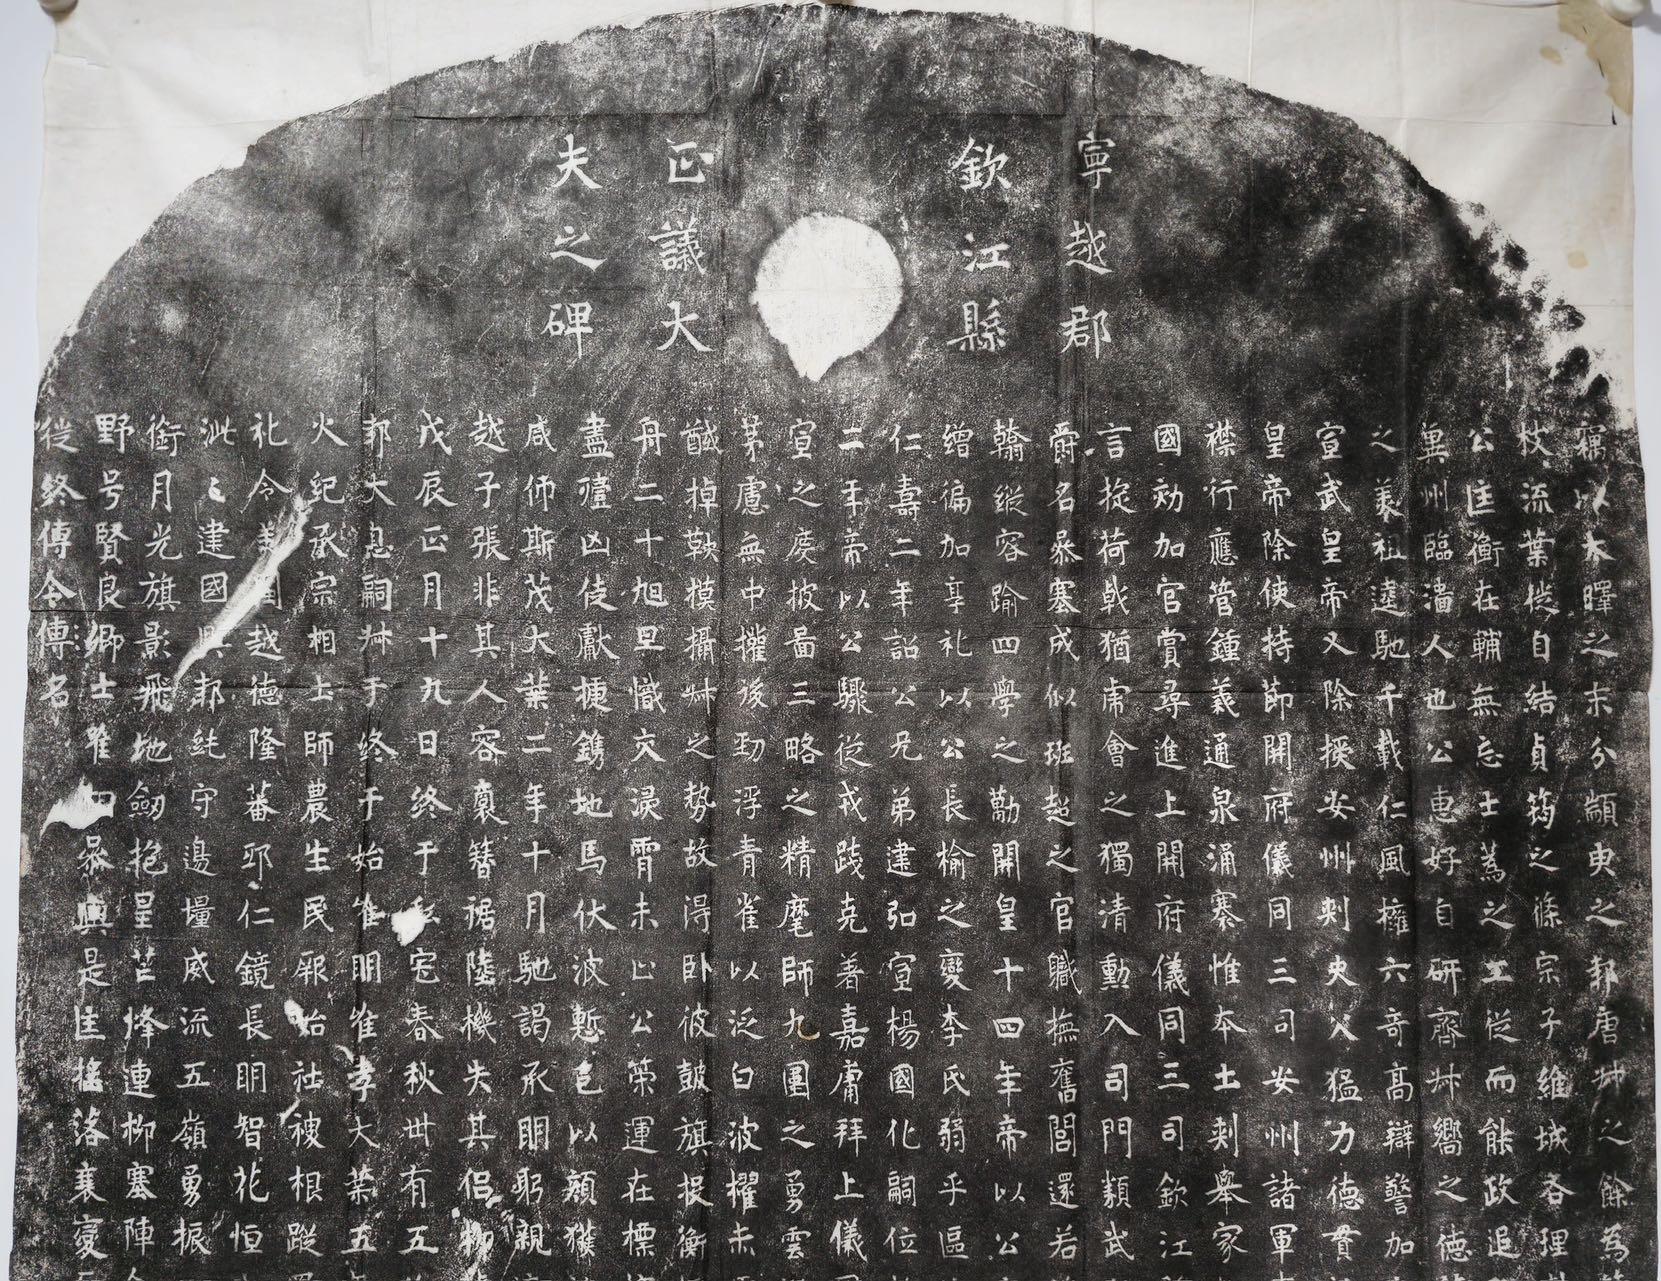 寧越郡
欽江縣
正議大
夫之碑
竊以太暉之末分顓臾之邦唐叔之餘為
杖流葉從自結貞筠之條宗子維城各理
公匡衡在輔無忘士蒍之工從而能政追
冀州臨淄人也公惠好自研齊叔嚮之德
之美祖逵馳千載仁風擁六奇高辯譬加
宣武皇帝又除授安州刺史父猛力德貫
皇帝除使持節開府儀同三司安州諸軍
襟行應管鍾義通泉涌寨惟夲土刺舉家
國効加官賞尋進上開府儀同三司欽江
言掟荷戟猶虜會之獨清動入司門類武
爵名暴塞成似班超之官職撫舊閭還若
翰縱容踰四學之勤開皇十四年帝以公
繒徧加享礼以公長榆之變李氏弱乎區
仁壽二年詔公兄弟建弘宣楊國化嗣位
二年帝以公驟從戎踐克著嘉庸拜上儀
宣之庱披畐三略之精麾師九圍之勇雲
茅慮無中權後勁浮青雀以泛白波櫂未
馘掉鞅摸攝叔之勢故淂卧彼鼓旗投衡
舟二十旭旦熾灾湨霄未止公策運在標
盡殪凶徒獻捷鐫地馬伏波慙色以顏獲
咸師斯茂大葉二年十月馳謁承眀躬親
越子張非其人容裒簪裾陸機失其侶
戊辰正月十九日終于私宅春秋丗有五
邦大息嗣叔于終于始惟眀惟孝大葉五
火紀承宗相土師農生民厥始社稷根蹤
礼令義囯越德隆蕃邛仁鏡長眀智花恒
泚之建國興邦純守邊壃威流五嶺勇振
銜月光旗影飛地劒抱星芒烽連柳塞陣
野号賢良卿士惟四暴輿是匡搖落衰变
從終傳令傳名